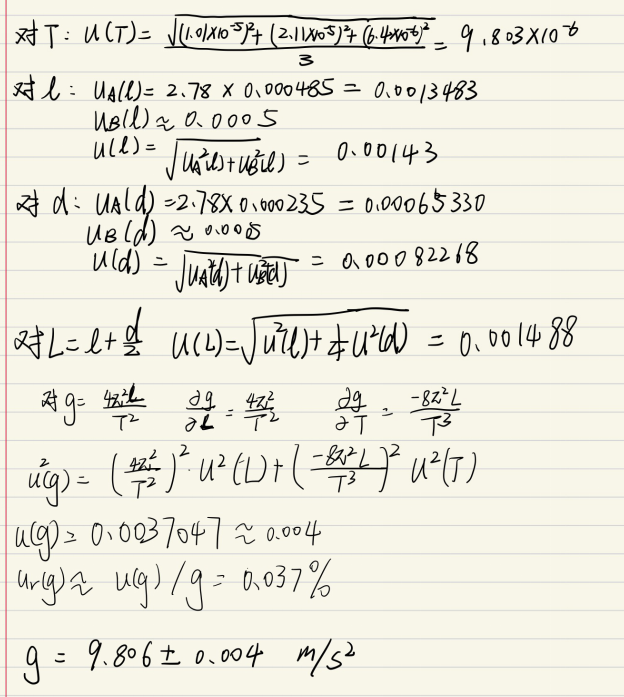 对T: u(T) = √((1.01×10⁻⁵)² + (2.11×10⁻⁵)² + (6.4×10⁻⁶)²) / 3 = 9.803×10⁻⁶
对l: u_A(l) = 2.78 × 0.000485 = 0.0013483
u_B(l) ≈ 0.0005
u(l) = √(u_A²(l) + u_B²(l)) = 0.00143
对d: u_A(d) = 2.78×0.000235 = 0.00065330
u_B(d) ≈ 0.0005
u(d) = √(u_A²(d) + u_B²(d)) = 0.00082268
对L = l + d/2 u(L) = √(u²(l) + 1/4 u²(d)) = 0.001488
对g = 4π²L/T² ∂g/∂L = 4π²/T² ∂g/∂T = -8π²L/T³
u²(g) = (4π²/T²)² · u²(L) + (-8π²L/T³)² u²(T)
u(g) = 0.0037047 ≈ 0.004
u_r(g) ≈ u(g)/g = 0.037%
g = 9.806 ± 0.004 m/s²